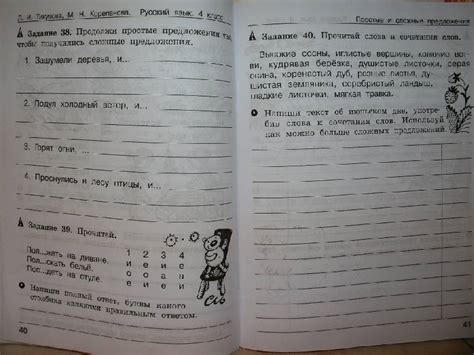 Л. И. Тикунова, М. Н. Корепанова. Русский язык. 4 класс
Задание 38. Продолжи простые предложения так,
чтобы получились сложные предложения.
1. Зашумели деревья, и...
2. Подул холодный ветер, и...
3. Горят огни, ...
4. Проснулись в лесу птицы, и...
Задание 39. Прочитай.
1 2 3 4
Пол...жать на диване. и е и е
Пол...скать бельё. о о а а
Пос...деть на стуле. е и и е
Напиши полный ответ, буквы какого
столбика являются правильным ответом.
40
Простые и сложные предложения
Задание 40. Прочитай слова и сочетания слов.
Высокие сосны, иглистые вершины,
кудрявая берёзка, душистые листочки, серая
осина, коренастый дуб, резные листья, ду-
шистая земляника, серебристый ландыш,
гладкие листочки, мягкая травка.
Напиши текст об июньском дне, употре-
бив слова и сочетания слов. Используй
как можно больше сложных предложений.
41